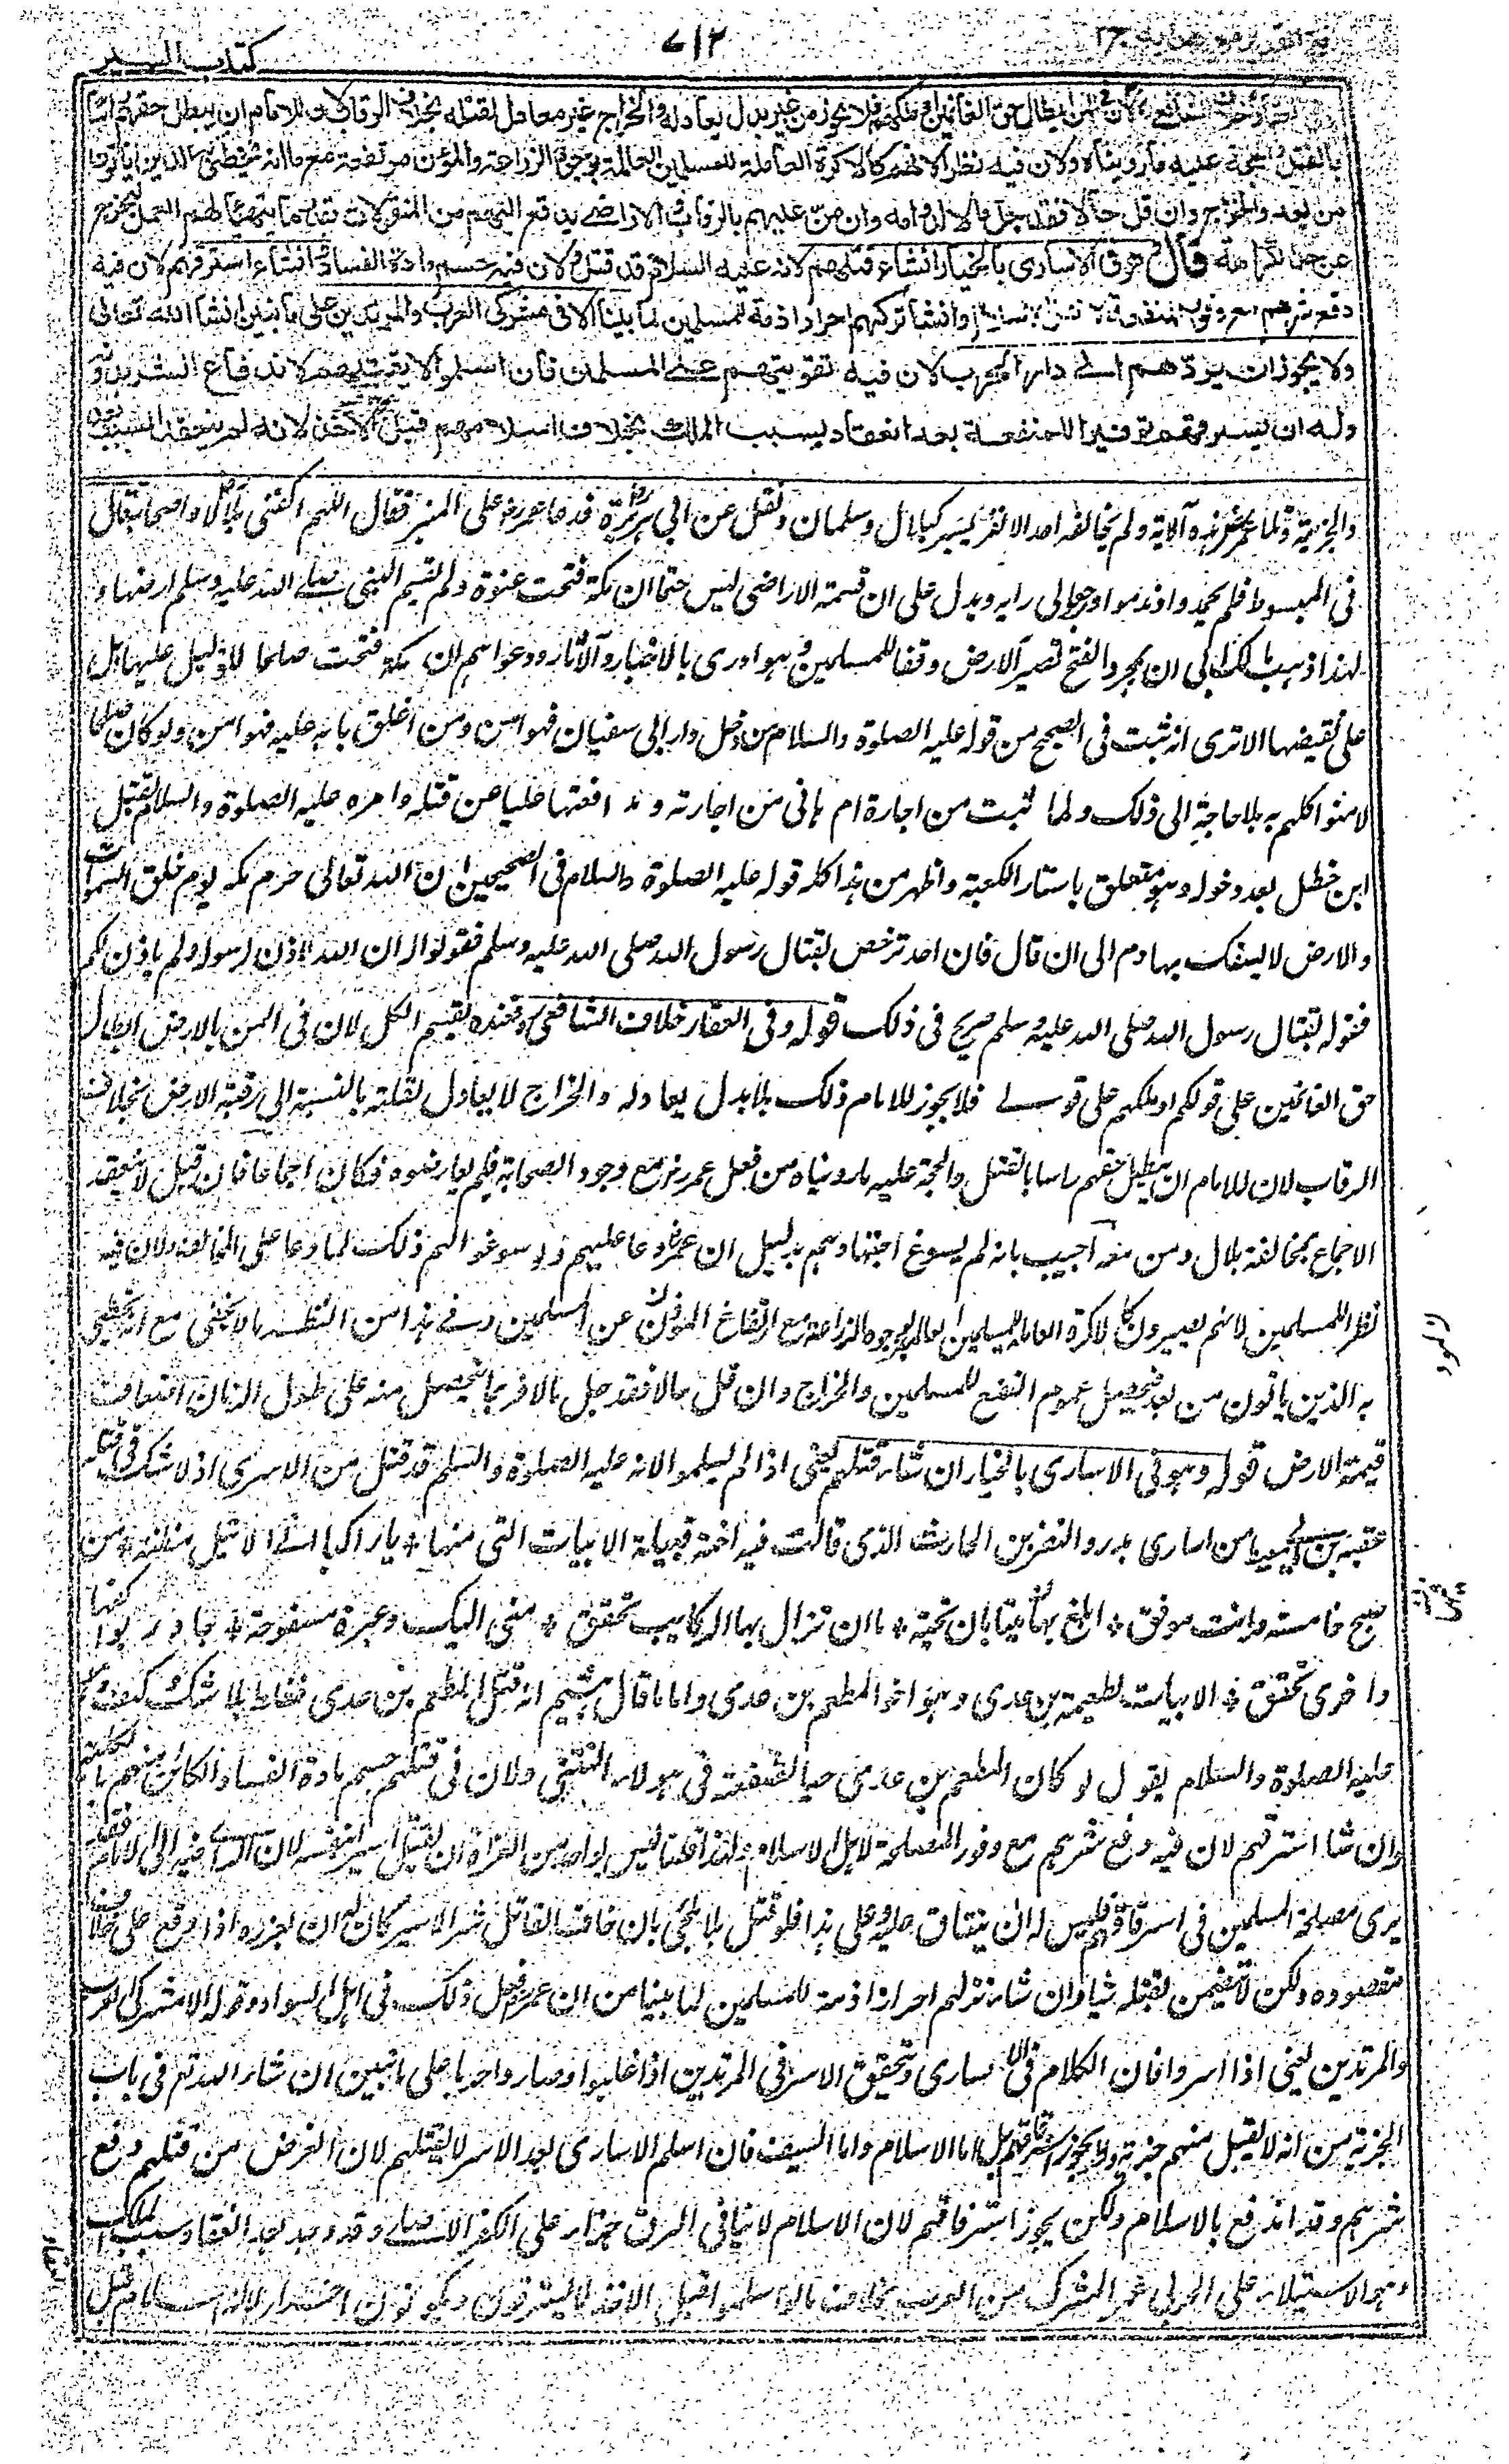 كتاب السير
٧١٢
بالقتل والحجة عليه ما رويناه ولان فيه نظرا لانهم كالاكرة العاملة للمسلمين العالمة بوجوه الزراعة والمؤن مرتفعة مع ما انه يحظى به الذين ياتون
من بعد والخراج وان قل حالا فقد جل مالا لدوامه وان من عليهم بالرقاب والاراضي يدفع اليهم من المنقولات بقدر ما يتهيأ لهم العمل ليخرج
عن حد الكراهة قال وهو في الاسارى بالخيار ان شاء قتلهم لانه عليه السلام قد قتل ولان فيه حسم مادة الفساد وان شاء استرقهم لان فيه
دفع شرهم مع وفور المنفعة لاهل الاسلام وان شاء تركهم احرارا ذمة للمسلمين لما بينا الا في مشركى العرب والمرتدين على ما نبين ان شاء الله تعالى
ولا يجوز ان يردهم الى دار الحرب لان فيه تقويتهم على المسلمين فان اسلموا لا يقتلهم لاندفاع الشر بدونه
وله ان يسترقهم توفيرا للمنفعة بعد انعقاد سبب الملك بخلاف اسلامهم قبل الاخذ لانه لم ينعقد السبب بعد
والجزية وتلا عمر رض هذه الآية ولم يخالفه احد الا نفر يسير كبلال وسلمان ونقل عن ابي هريرة فدعا عمر رض على المنبر فقال اللهم اكفنى بلالا واصحابه قال
فى المبسوط فلم يحمدوا وندموا ورجعوا الى رايه ويدل على ان قسمة الاراضى ليس حتما ان مكة فتحت عنوة ولم يقسم النبى صلى الله عليه وسلم ارضها و
لهذا ذهب مالك الى ان بمجرد الفتح تصير الارض وقفا للمسلمين وهو ادرى بالاخبار والآثار ودعواهم ان مكة فتحت صلحا لا دليل عليها بل
على نقيضها الا ترى انه ثبت فى الصحيح من قوله عليه الصلوة والسلام من دخل دار ابى سفيان فهو آمن ومن اغلق بابه عليه فهو آمن ولو كان صلحا
لامنوا كلهم به بلا حاجة الى ذلك ولما ثبت من اجارة ام هانى من اجارته ومدافعتها عليا عن قتله وامره عليه الصلوة والسلام بقتل
ابن خطل بعد دخوله وهو متعلق باستار الكعبة واظهر من هذا كله قوله عليه الصلوة والسلام فى الصحيحين ان الله تعالى حرم مكة يوم خلق السموات
والارض لا يسفك بها دم الى ان قال فان احد ترخص بقتال رسول الله صلى الله عليه وسلم فقولوا له ان الله اذن لرسوله ولم ياذن لكم
فقوله بقتال رسول الله صلى الله عليه وسلم صريح فى ذلك قوله وفى العقار خلاف الشافعى رح فعنده يقسم الكل لان فى المن بالارض ابطال
حق الغانمين على قولكم او ملكهم على قولى فلا يجوز للامام ذلك بلا بدل يعادله والخراج لا يعادل لقلته بالنسبة الى رقبة الارض بخلاف
الرقاب لان للامام ان يبطل حقهم راسا بالقتل والحجة عليه ما رويناه من فعل عمر رض مع وجود الصحابة فلم يعارضوه فكان اجماعا فان قيل لا ينعقد
الاجماع بمخالفة بلال ومن معه اجيب بانه لم يسوغ اجتهادهم بدليل ان عمر رض دعا عليهم ولو سوغوا لهم ذلك لما دعا على المخالف ولان فيه
نظرا للمسلمين لانهم يصيرون كالاكرة العاملة للمسلمين العالمة بوجوه الزراعة مع ارتفاع المؤن عن المسلمين وفى هذا من النظر ما لا يخفى مع انه يحظى
به الذين ياتون من بعد فيحصل عموم النفع للمسلمين والخراج وان قل حالا فقد جل مالا فربما يحصل منه على طول الزمان اضعاف
قيمة الارض قوله وهو فى الاسارى بالخيار ان شاء قتلهم يعنى اذا لم يسلموا لانه عليه الصلوة والسلم قد قتل من الاسرى اذ لا شك فى قتله
عقبة بن ابى معيط من اسارى بدر والنضر بن الحارث الذى قالت فيه اخته قتيلة الابيات التى منها * يا راكبا ان الاثيل مظنة * من
صبح خامسة وانت موفق * ابلغ بها ميتا بان تحية * ما ان تزال بها الركايب تخفق * منى اليك وعبرة مسفوحة * جادت لواكفها
واخرى تخنق * الابيات وطعيمة بن عدى وهو اخو المطعم بن عدى واما ما قال هشيم انه قتل المطعم بن عدى فغلط بلا شك كيف وهو
عليه الصلوة والسلام يقول لو كان المطعم بن عدى حيا لشفعته فى هولاء النتنى ولان فى قتلهم حسم مادة الفساد الكائن منهم بالكلية
وان شاء استرقهم لان فيه دفع شرهم مع وفور المصلحة لاهل الاسلام ولهذا قلنا ليس لواحد من الغزاة ان يقتل اسيرا بنفسه لان الراى فيه الى الامام فقد
يرى مصلحة المسلمين فى استرقاقهم فليس له ان يفتات عليه وعلى هذا فلو قتل بلا ملجئ بان خاف القاتل شر الاسير كان له ان يعزره اذا وقع على خلاف
مقصوده ولكن لا يضمن بقتله شيا وان شاء تركهم احرارا ذمة للمسلمين لما بينا من ان عمر رض فعل ذلك فى اهل السواد وقوله الا مشركى العرب
والمرتدين يعنى اذا اسروا فان الكلام فى الاسارى وتحقيق الاسر فى المرتدين اذا غلبوا وصاروا حربا على ما نبين ان شاء الله تع فى باب
الجزية من انه لا يقبل منهم جزية ولا يجوز استرقاقهم بل اما الاسلام واما السيف فان اسلم الاسارى بعد الاسر لا يقتلهم لان الغرض من قتلهم دفع
شرهم وقد اندفع بالاسلام ولكن يجوز استرقاقهم لان الاسلام لا ينافى الرق جزاء على الكفر الاصلى وقد وجد بعد انعقاد سبب الملك
وهو الاستيلاء على الحربى غير المشرك من العرب بخلاف ما لو اسلموا قبل الاخذ لا يسترقون ويكونون احرارا لانه اسلام قبل